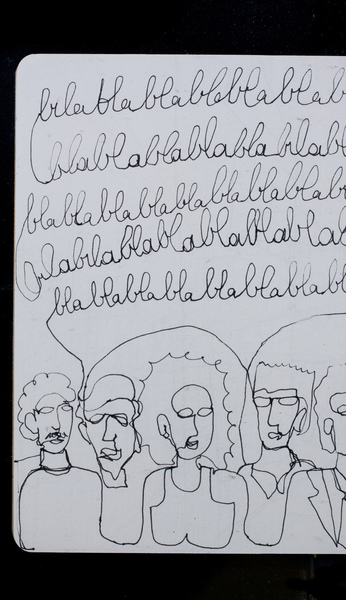 blablablablablablablab
blablablablablablabl
blablablablablablablabla
blablablablablablablabla
blablablablablablablabl